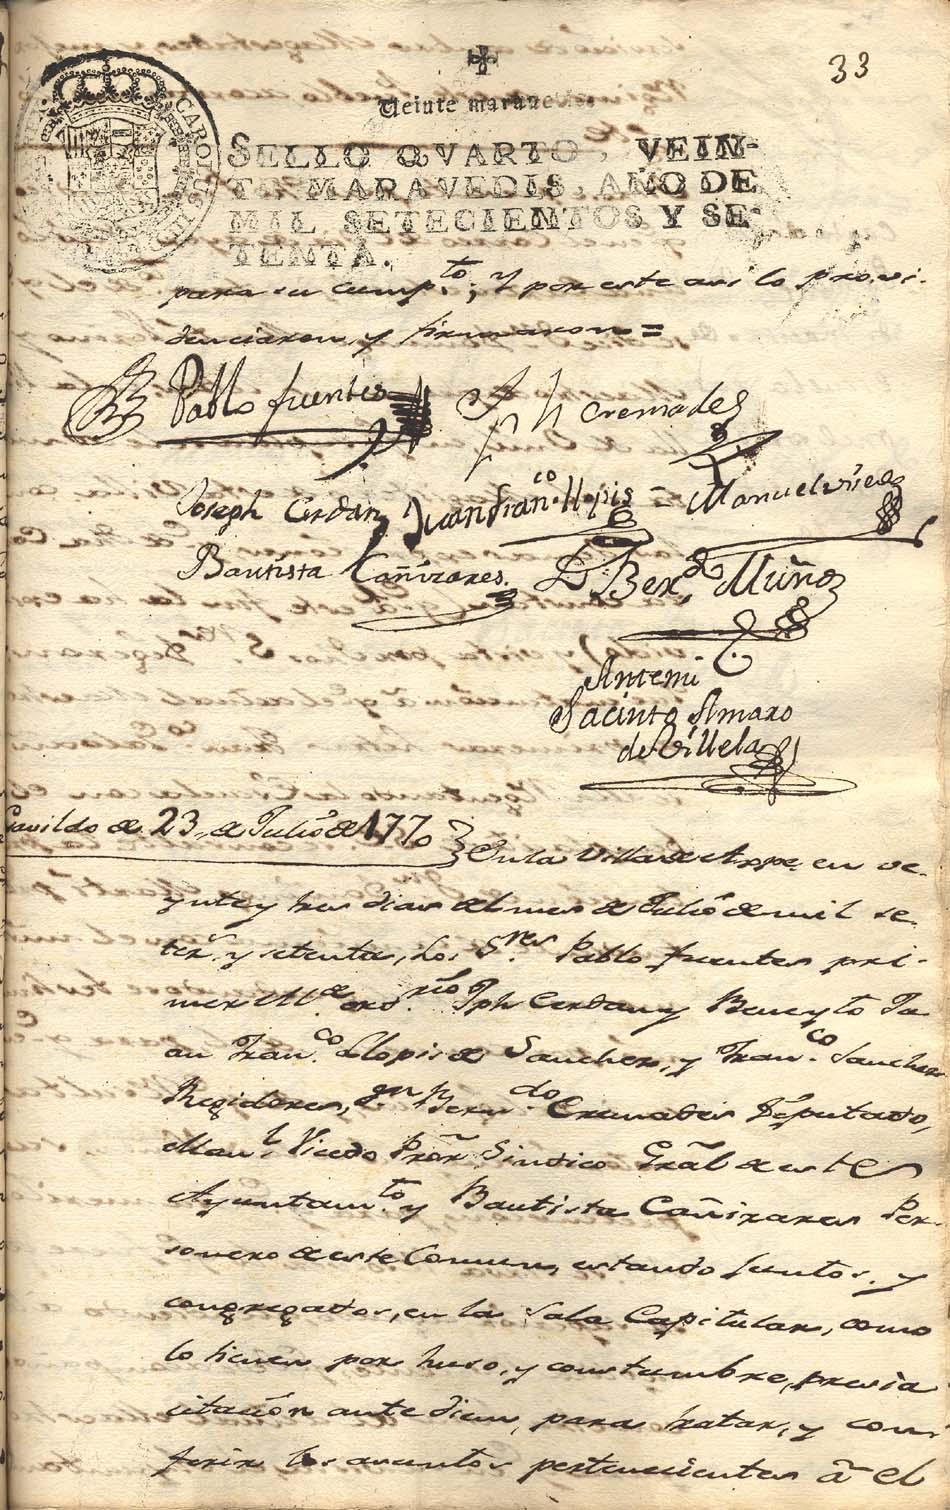 33
Veinte maraue
CAROLUS III
SELLO QVARTO, VEIN-
TE MARAVEDIS, AÑO DE
MIL SETECIENTOS Y SE-
TENTA.
para su cump.to; Y por este asi lo provi-
denciaron, y firmaron =
Pablo fuentes Jph Cremades
Joseph Cerdan Juan Fran.co Llopis = Manuel Vicedo
Bautista Cañizares. D. Ber.do Muñoz
Antemi
Jacinto Amaro
de Villela
Cavildo de 23, de Julio de 1770 } En la Villa de Aspe, en ve-
ynte y tres dias del mes de Julio de mil se-
tec.s y setenta, Los S.res Pablo fuentes pri-
mer Alld.e ord.rio Jph Cerdan y Beneyto Ju-
an Fran.co Llopis de Sanchez, y Fran.co Sanchez
Regidores, d.n Bern.do Cremades Diputado,
Man.l Vicedo Pror Sindico Gral de este
Ayuntam.to y Bautista Cañizares Per-
sonero de este Comun, estando Juntos, y
congregados, en la Sala Capitular, como
lo tienen por huso, y constumbre, previa
citacion ante diem, para tratar, y con-
ferir los asuntos pertenecientes â el